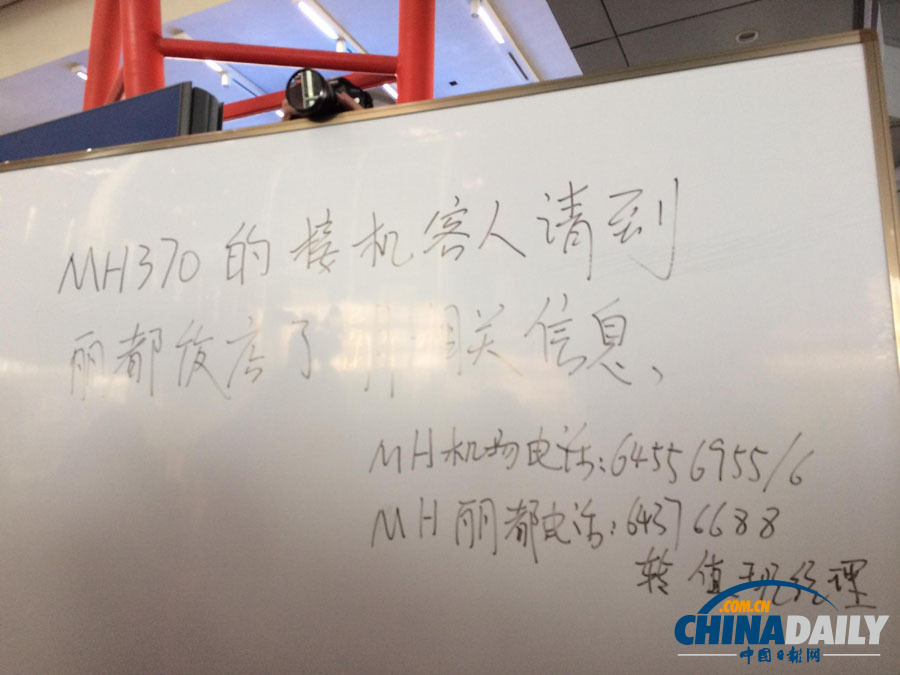 MH370的接机客人请到
丽都饭店了解相关信息、
MH机场电话:64556955/6
MH丽都电话:64376688
转值班经理
.COM.CN
CHINADAILY
中国日报网